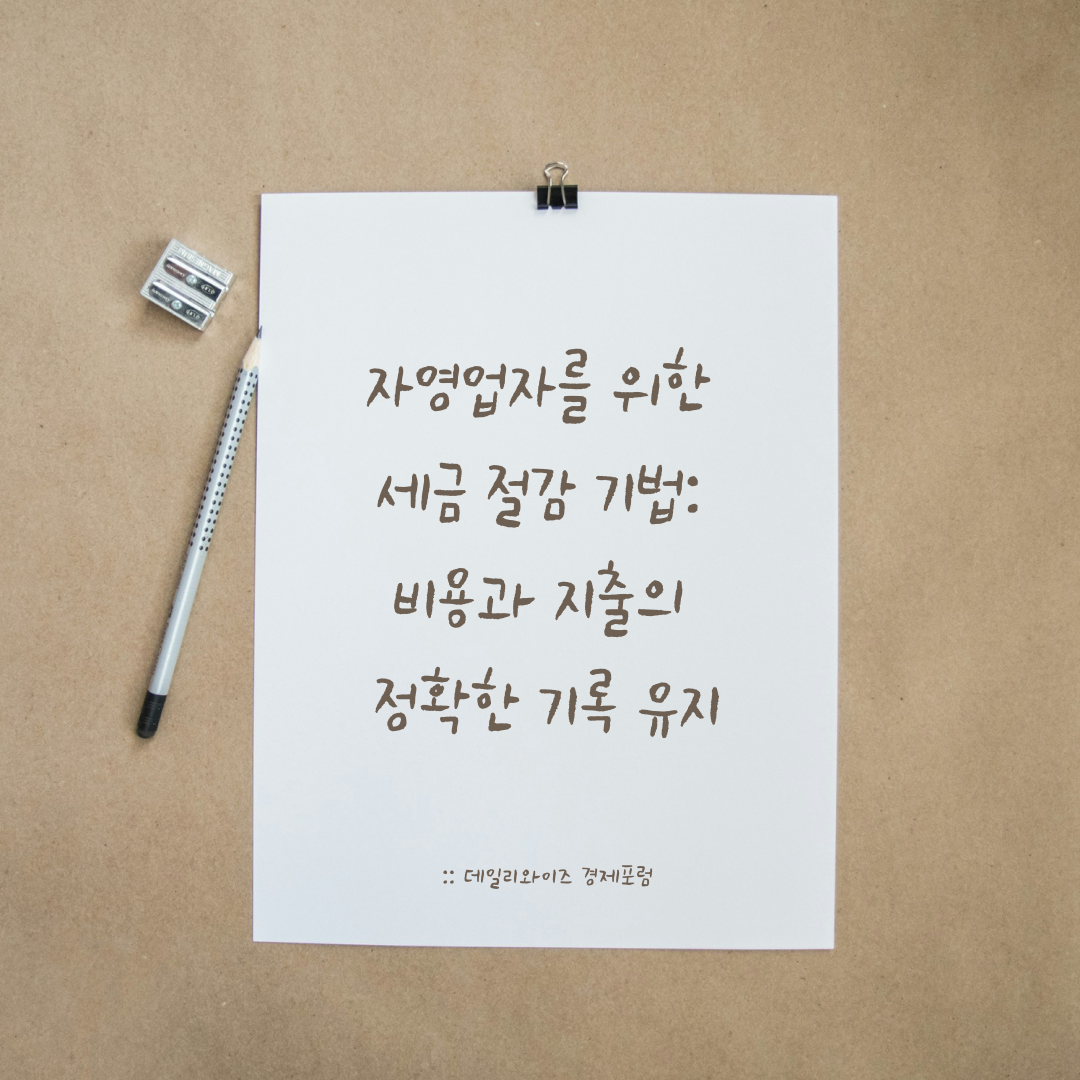 자영업자를 위한
세금 절감 기법:
비용과 지출의
정확한 기록 유지
:: 데일리와이즈 경제포럼